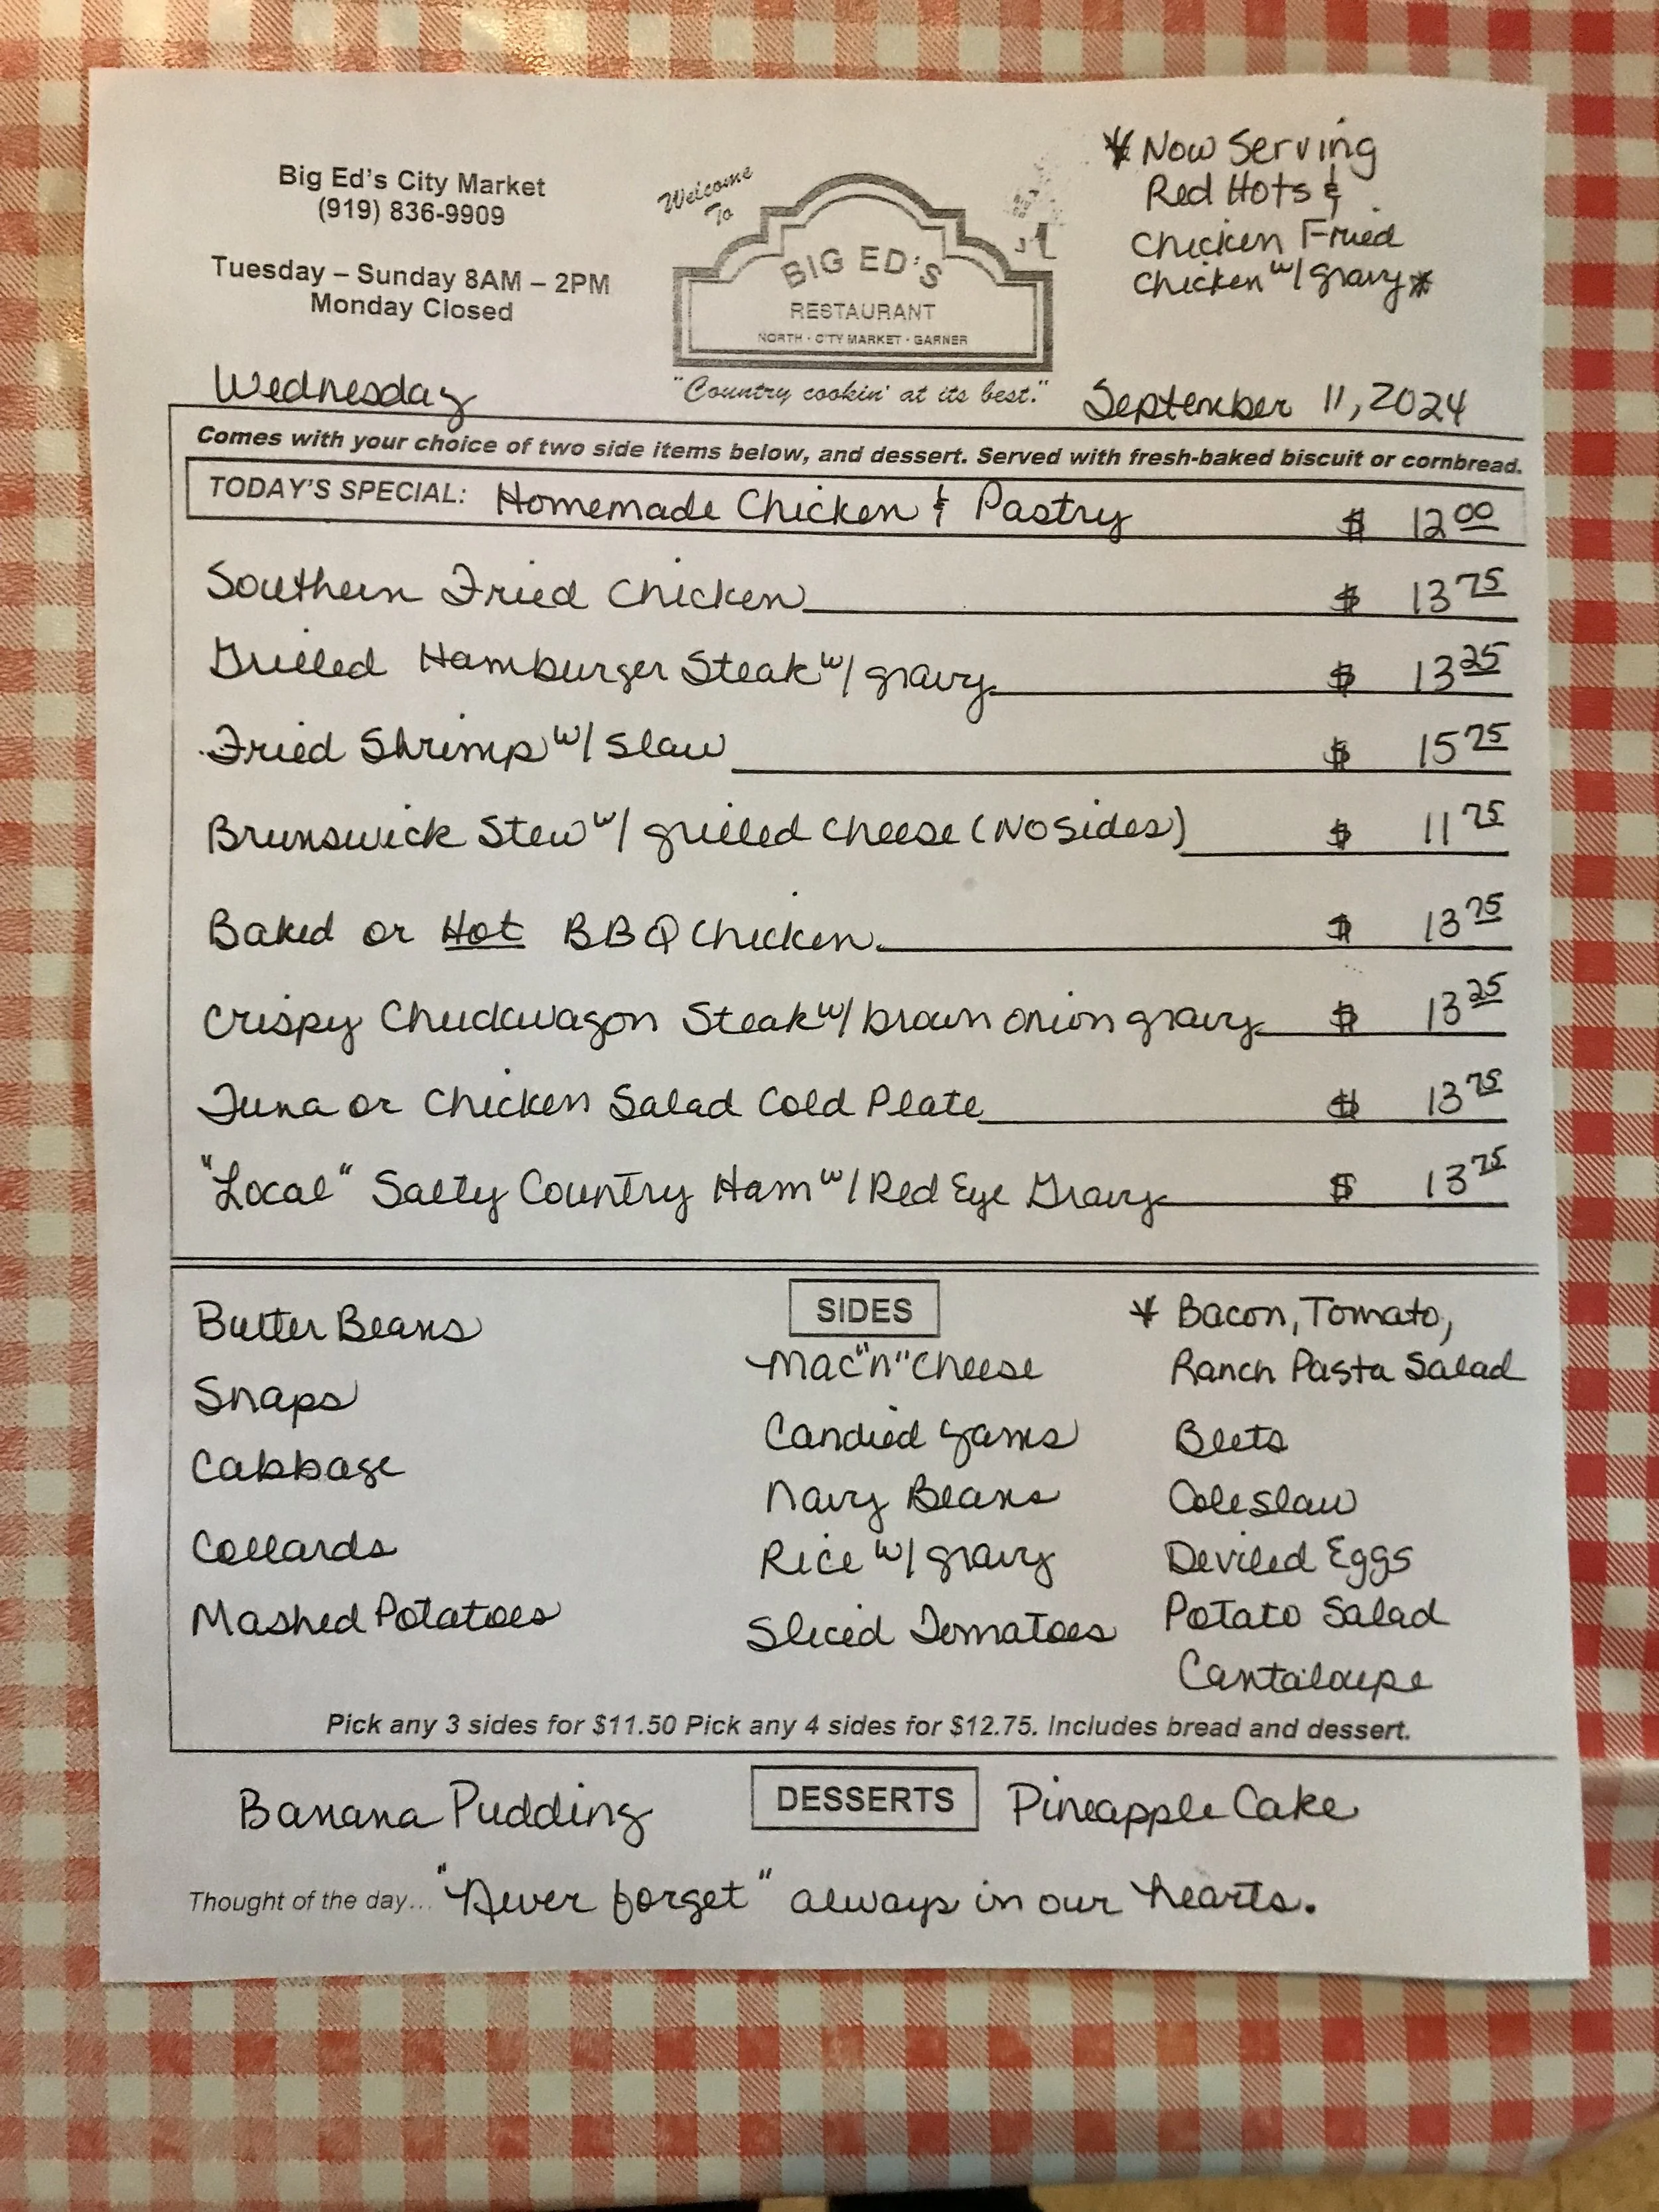 Big Ed's City Market
(919) 836-9909
Tuesday – Sunday 8AM – 2PM
Monday Closed
Welcome
To
BIG ED'S
RESTAURANT
NORTH · CITY MARKET · GARNER
"Country cookin' at its best."
* Now Serving
Red Hots &
Chicken Fried
Chicken w/ gravy *
Wednesday
September 11, 2024
Comes with your choice of two side items below, and dessert. Served with fresh-baked biscuit or cornbread.
TODAY'S SPECIAL: Homemade Chicken & Pastry $ 12 00
Southern Fried Chicken $ 13 75
Grilled Hamburger Steak w/ gravy $ 13 25
Fried Shrimp w/ Slaw $ 15 25
Brunswick Stew w/ grilled cheese (No sides) $ 11 75
Baked or Hot BBQ Chicken $ 13 75
Crispy Chuckwagon Steak w/ brown onion gravy $ 13 25
Tuna or Chicken Salad Cold Plate $ 13 75
"Local" Salty Country Ham w/ Red Eye Gravy $ 13 75
SIDES
Butter Beans
Snaps
Cabbage
Collards
Mashed Potatoes
Mac "n" Cheese
Candied Yams
Navy Beans
Rice w/ gravy
Sliced Tomatoes
* Bacon, Tomato,
Ranch Pasta Salad
Beets
Coleslaw
Deviled Eggs
Potato Salad
Cantaloupe
Pick any 3 sides for $11.50 Pick any 4 sides for $12.75. Includes bread and dessert.
Banana Pudding
DESSERTS
Pineapple Cake
Thought of the day... "Never forget" always in our hearts.